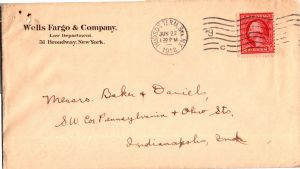 Wells Fargo & Company.
Law Department.
51 Broadway, New York.
HUDSON TERM. STA. N.Y.
JUN 23
1 30 PM
Messrs. Baker & Daniels,
S.W. Cor Pennsylvania & Ohio Sts.
Indianapolis, Ind